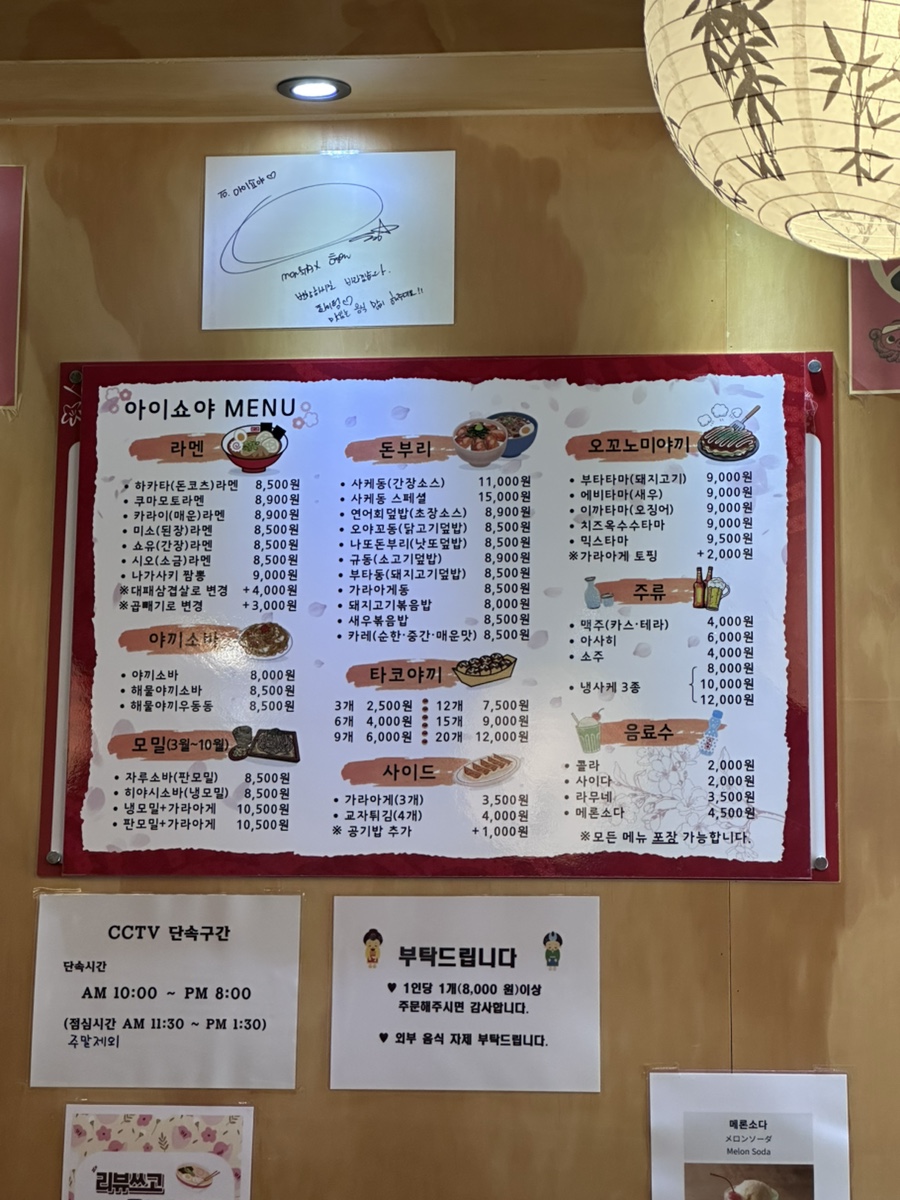 To. 아이쇼야♡
아이쇼야 MENU
라멘
• 하카타(돈코츠)라멘 8,500원
• 쿠마모토라멘 8,900원
• 카라이(매운)라멘 8,900원
• 미소(된장)라멘 8,500원
• 쇼유(간장)라멘 8,500원
• 시오(소금)라멘 8,500원
• 나가사키 짬뽕 9,000원
※대패삼겹살로 변경 +4,000원
※곱빼기로 변경 +3,000원
야끼소바
• 야끼소바 8,000원
• 해물야끼소바 8,500원
• 해물야끼우동동 8,500원
모밀(3월~10월)
• 자루소바(판모밀) 8,500원
• 히야시소바(냉모밀) 8,500원
• 냉모밀+가라아게 10,500원
• 판모밀+가라아게 10,500원
돈부리
• 사케동(간장소스) 11,000원
• 사케동 스페셜 15,000원
• 연어회덮밥(초장소스) 8,900원
• 오야꼬동(닭고기덮밥) 8,500원
• 나또돈부리(낫또덮밥) 8,500원
• 규동(소고기덮밥) 8,900원
• 부타동(돼지고기덮밥) 8,500원
• 가라아게동 8,500원
• 돼지고기볶음밥 8,000원
• 새우볶음밥 8,500원
• 카레(순한·중간·매운맛) 8,500원
타코야끼
3개 2,500원 12개 7,500원
6개 4,000원 15개 9,000원
9개 6,000원 20개 12,000원
사이드
• 가라아게(3개) 3,500원
• 교자튀김(4개) 4,000원
※ 공기밥 추가 +1,000원
오꼬노미야끼
• 부타타마(돼지고기) 9,000원
• 에비타마(새우) 9,000원
• 이까타마(오징어) 9,000원
• 치즈옥수수타마 9,000원
• 믹스타마 9,500원
※가라아게 토핑 +2,000원
주류
• 맥주(카스·테라) 4,000원
• 아사히 6,000원
• 소주 4,000원
• 냉사케 3종 8,000원
10,000원
12,000원
음료수
• 콜라 2,000원
• 사이다 2,000원
• 라무네 3,500원
• 메론소다 4,500원
※모든 메뉴 포장 가능합니다.
CCTV 단속구간
단속시간
AM 10:00 ~ PM 8:00
(점심시간 AM 11:30 ~ PM 1:30)
주말제외
부탁드립니다
♥ 1인당 1개(8,000 원)이상
주문해주시면 감사합니다.
♥ 외부 음식 자제 부탁드립니다.
리뷰쓰고
메론소다
メロンソーダ
Melon Soda